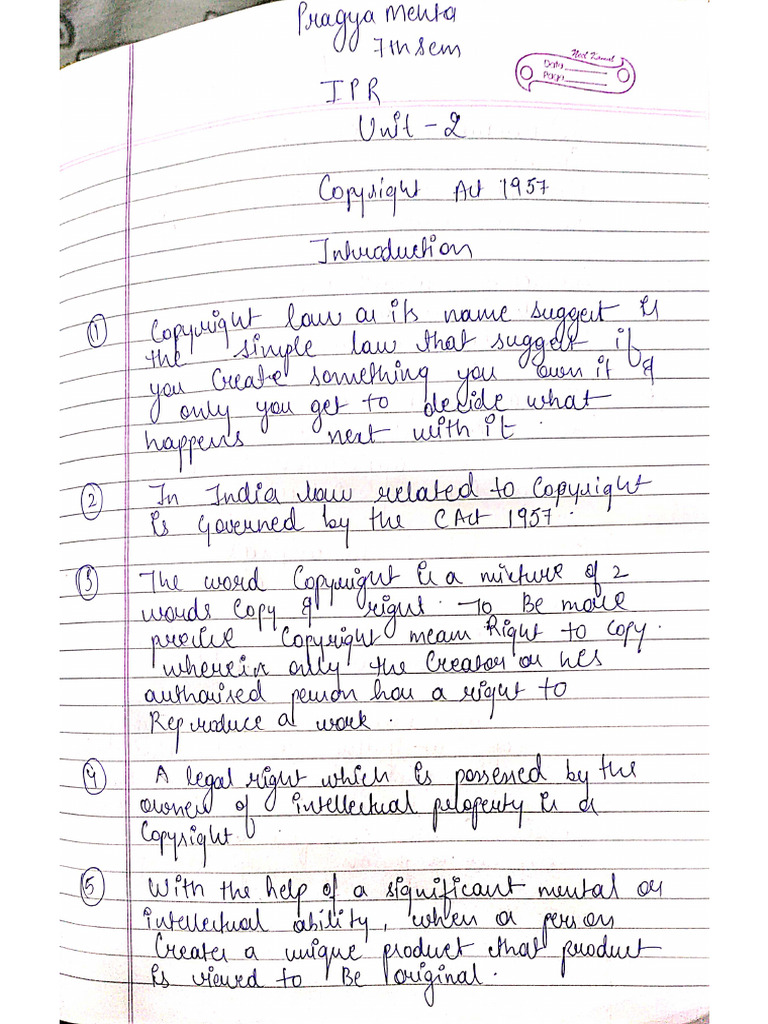 Pragya Mehta
7th sem
Neel Kamal
Date
Page
IPR
Unit - 2
Copyright Act 1957
Introduction
① Copyright law as its name suggest is
the simple law that suggest if
you create something you own it &
only you get to decide what
happens next with it.
② In India law related to Copyright
is governed by the C Act 1957.
③ The word Copyright is a mixture of 2
words Copy & right. To Be more
precise Copyright mean Right to Copy.
wherein only the Creator or his
authorised person has a right to
Reproduce a work.
④ A legal right which is possessed by the
owner of intellectual property is a
Copyright.
⑤ With the help of a significant mental or
intellectual ability, when a person
Creates a unique product that product
is viewed to Be original.